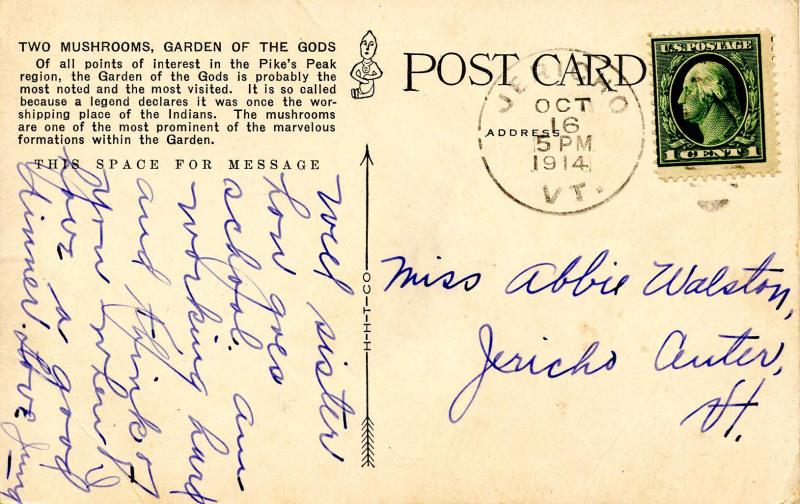 TWO MUSHROOMS, GARDEN OF THE GODS
Of all points of interest in the Pike's Peak
region, the Garden of the Gods is probably the
most noted and the most visited. It is so called
because a legend declares it was once the wor-
shipping place of the Indians. The mushrooms
are one of the most prominent of the marvelous
formations within the Garden.
THIS SPACE FOR MESSAGE
well sister
how goes
school. am
working hard
and think of
you when I
have a good
dinner. Love
H-H-T-CO
POST CARD
ADDRESS
OCT
16
5 PM
1914
VT.
U.S. POSTAGE
1 CENT 1
Miss Abbie Walston,
Jericho Center,
Vt.